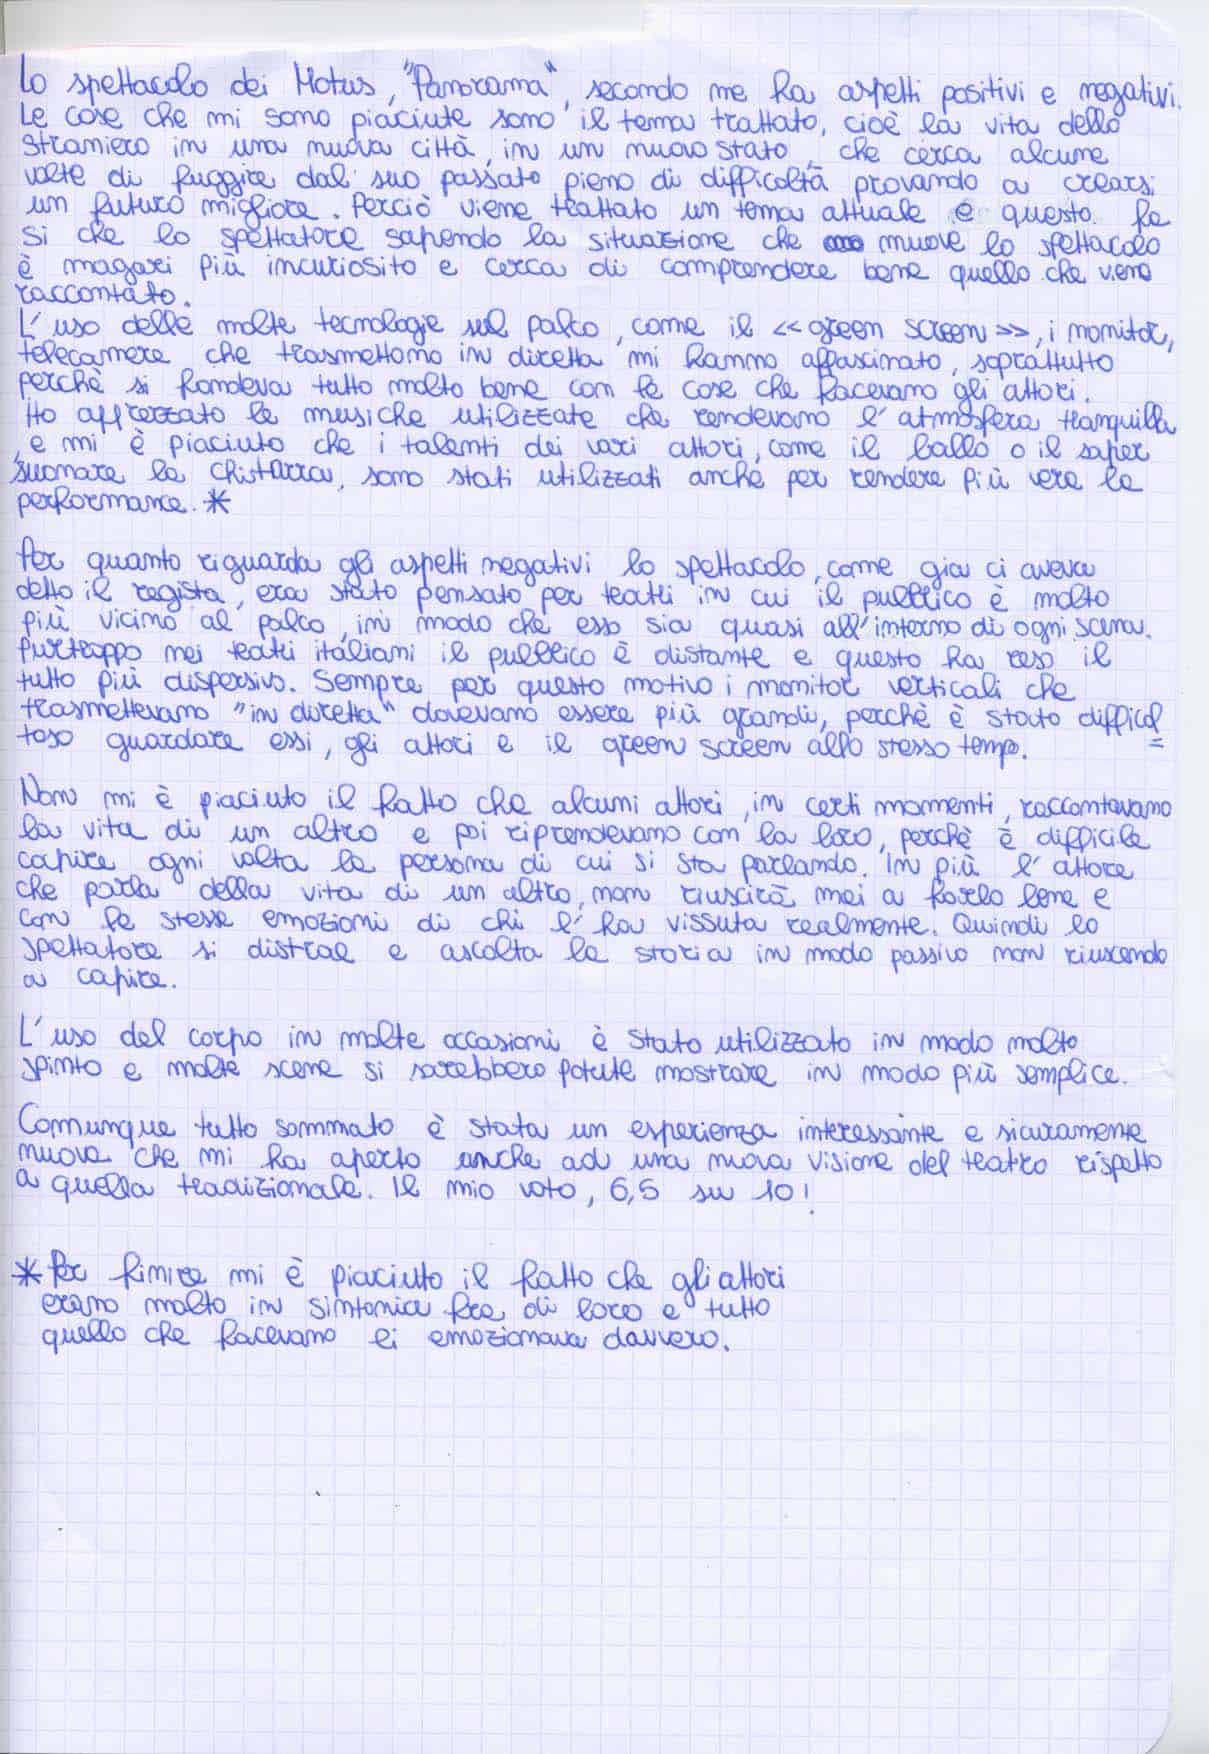 Lo spettacolo dei Motus, "Panorama", secondo me ha aspetti positivi e negativi.
Le cose che mi sono piaciute sono il tema trattato, cioè la vita dello
straniero in una nuova città, in un nuovo stato, che cerca alcune
volte di fuggire dal suo passato pieno di difficoltà provando a crearsi
un futuro migliore. Perciò viene trattato un tema attuale e questo fa
si che lo spettatore sapendo la situazione che muove lo spettacolo
è magari più incuriosito e cerca di comprendere bene quello che viene
raccontato.
L'uso delle molte tecnologie sul palco, come il <<green screen>>, i monitor,
telecamere che trasmettono in diretta mi hanno affascinato, soprattutto
perchè si fondeva tutto molto bene con le cose che facevano gli attori.
Ho apprezzato le musiche utilizzate che rendevano l'atmosfera tranquilla
e mi è piaciuto che i talenti dei vari attori, come il ballo o il saper
suonare la chitarra, sono stati utilizzati anche per rendere più vera la
performance. *
Per quanto riguarda gli aspetti negativi lo spettacolo, come gia ci aveva
detto il regista, era stato pensato per teatri in cui il pubblico è molto
più vicino al palco, in modo che esso sia quasi all'interno di ogni scena.
Purtroppo nei teatri italiani il pubblico è distante e questo ha reso il
tutto più dispersivo. Sempre per questo motivo i monitor verticali che
trasmettevano "in diretta" dovevano essere più grandi, perchè è stato difficol
=
toso guardare essi, gli attori e il green screen allo stesso tempo.
Non mi è piaciuto il fatto che alcuni attori, in certi momenti, raccontavano
la vita di un altro e poi riprendevano con la loro, perchè è difficile
capire ogni volta la persona di cui si sta parlando. In più l'attore
che parla della vita di un altro, non riuscirà mai a farlo bene e
con le stesse emozioni di chi l'ha vissuta realmente. Quindi lo
spettatore si distrae e ascolta la storia in modo passivo non riuscendo
a capire.
L'uso del corpo in molte occasioni è stato utilizzato in modo molto
spinto e molte scene si sarebbero potute mostrare in modo più semplice.
Comunque tutto sommato è stata un esperienza interessante e sicuramente
nuova che mi ha aperto anche ad una nuova visione del teatro rispetto
a quella tradizionale. Il mio voto, 6,5 su 10!
* Per finire mi è piaciuto il fatto che gli attori
erano molto in sintonia fra di loro e tutto
quello che facevano li emozionava davvero.